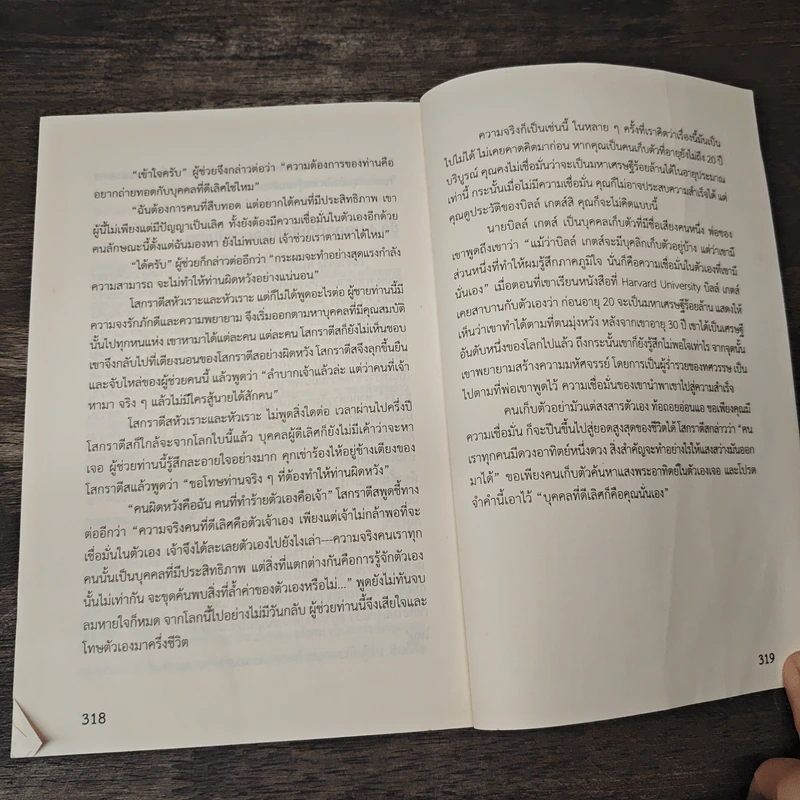 "เข้าใจครับ" ผู้ช่วยจึงกล่าวต่อว่า "ความต้องการของท่านคือ
อยากถ่ายทอดกับบุคคลที่ดีเลิศใช่ไหม"
"ฉันต้องการคนที่สืบทอด แต่อยากได้คนที่มีประสิทธิภาพ เขา
ผู้นี้ไม่เพียงแต่มีปัญญาเป็นเลิศ ทั้งยังต้องมีความเชื่อมั่นในตัวเองอีกด้วย
คนลักษณะนี้ตั้งแต่ฉันมองหา ยังไม่พบเลย เจ้าช่วยเราตามหาได้ไหม"
"ได้ครับ" ผู้ช่วยก็กล่าวต่ออีกว่า "กระผมจะทำอย่างสุดแรงกำลัง
ความสามารถ จะไม่ทำให้ท่านผิดหวังอย่างแน่นอน"
โสกราตีสหัวเราะและหัวเราะ แต่ก็ไม่ได้พูดอะไรต่อ ผู้ชายท่านนี้มี
ความจงรักภักดีและความพยายาม จึงเริ่มออกตามหาบุคคลที่มีคุณสมบัติ
นั้นไปทุกหนแห่ง เขาหามาได้แต่ละคน แต่ละคน โสกราตีสก็ยังไม่เห็นชอบ
เขาจึงกลับไปที่เตียงนอนของโสกราตีสอย่างผิดหวัง โสกราตีสจึงลุกขึ้นยืน
และจับไหล่ของผู้ช่วยคนนี้ แล้วพูดว่า "ลำบากเจ้าแล้วล่ะ แต่ว่าคนที่เจ้า
หามา จริง ๆ แล้วไม่มีใครสู้นายได้สักคน"
โสกราตีสหัวเราะและหัวเราะ ไม่พูดสิ่งใดต่อ เวลาผ่านไปครึ่งปี
โสกราตีสก็ใกล้จะจากโลกใบนี้แล้ว บุคคลผู้ดีเลิศก็ยังไม่มีเค้าว่าจะหา
เจอ ผู้ช่วยท่านนี้รู้สึกละอายใจอย่างมาก คุกเข่าร้องไห้อยู่ข้างเตียงของ
โสกราตีสแล้วพูดว่า "ขอโทษท่านจริง ๆ ที่ต้องทำให้ท่านผิดหวัง"
"คนผิดหวังคือฉัน คนที่ทำร้ายตัวเองคือเจ้า" โสกราตีสพูดชี้ทาง
ต่ออีกว่า "ความจริงคนที่ดีเลิศคือตัวเจ้าเอง เพียงแต่เจ้าไม่กล้าพอที่จะ
เชื่อมั่นในตัวเอง เจ้าจึงได้ละเลยตัวเองไปยังไงเล่า---ความจริงคนเราทุก
คนนั้นเป็นบุคคลที่มีประสิทธิภาพ แต่สิ่งที่แตกต่างกันคือการรู้จักตัวเอง
นั้นไม่เท่ากัน จะขุดค้นพบสิ่งที่ล้ำค่าของตัวเองหรือไม่..." พูดยังไม่ทันจบ
ลมหายใจก็หมด จากโลกนี้ไปอย่างไม่มีวันกลับ ผู้ช่วยท่านนี้จึงเสียใจและ
โทษตัวเองมาครึ่งชีวิต
318
ความจริงก็เป็นเช่นนี้ ในหลาย ๆ ครั้งที่เราคิดว่าเรื่องนี้มันเป็น
ไปไม่ได้ ไม่เคยคาดคิดมาก่อน หากคุณเป็นคนเก็บตัวที่อายุยังไม่ถึง 20 ปี
บริบูรณ์ คุณคงไม่เชื่อมั่นว่าจะเป็นมหาเศรษฐีร้อยล้านได้ในอายุประมาณ
เท่านี้ กระนั้นเมื่อไม่มีความเชื่อมั่น คุณก็ไม่อาจประสบความสำเร็จได้ แต่
คุณดูประวัติของบิลล์ เกตส์สิ คุณก็จะไม่คิดแบบนี้
นายบิลล์ เกตส์ เป็นบุคคลเก็บตัวที่มีชื่อเสียงคนหนึ่ง พ่อของ
เขาพูดถึงเขาว่า "แม้ว่าบิลล์ เกตส์จะมีบุคลิกเก็บตัวอยู่บ้าง แต่ว่าเขามี
ส่วนหนึ่งที่ทำให้ผมรู้สึกภาคภูมิใจ นั่นก็คือความเชื่อมั่นในตัวเองที่เขามี
นั่นเอง" เมื่อตอนที่เขาเรียนหนังสือที่ Harvard University บิลล์ เกตส์
เคยสาบานกับตัวเองว่า ก่อนอายุ 20 จะเป็นมหาเศรษฐีร้อยล้าน แสดงให้
เห็นว่าเขาทำได้ตามที่ตนมุ่งหวัง หลังจากเขาอายุ 30 ปี เขาได้เป็นเศรษฐี
อันดับหนึ่งของโลกไปแล้ว ถึงกระนั้นเขาก็ยังรู้สึกไม่พอใจเท่าไร จากจุดนั้น
เขาพยายามสร้างความมหัศจรรย์ โดยการเป็นผู้ร่ำรวยของทศวรรษ เป็น
ไปตามที่พ่อเขาพูดไว้ ความเชื่อมั่นของเขานำพาเขาไปสู่ความสำเร็จ
คนเก็บตัวอย่ามัวแต่สงสารตัวเอง ท้อถอยอ่อนแอ ขอเพียงคุณมี
ความเชื่อมั่น ก็จะปีนขึ้นไปสู่ยอดสูงสุดของชีวิตได้ โสกราตีสกล่าวว่า "คน
เราทุกคนมีดวงอาทิตย์หนึ่งดวง สิ่งสำคัญจะทำอย่างไรให้แสงสว่างมันออก
มาได้" ขอเพียงคนเก็บตัวค้นหาแสงพระอาทิตย์ในตัวเองเจอ และโปรด
จำคำนี้เอาไว้ "บุคคลที่ดีเลิศก็คือคุณนั่นเอง"
319